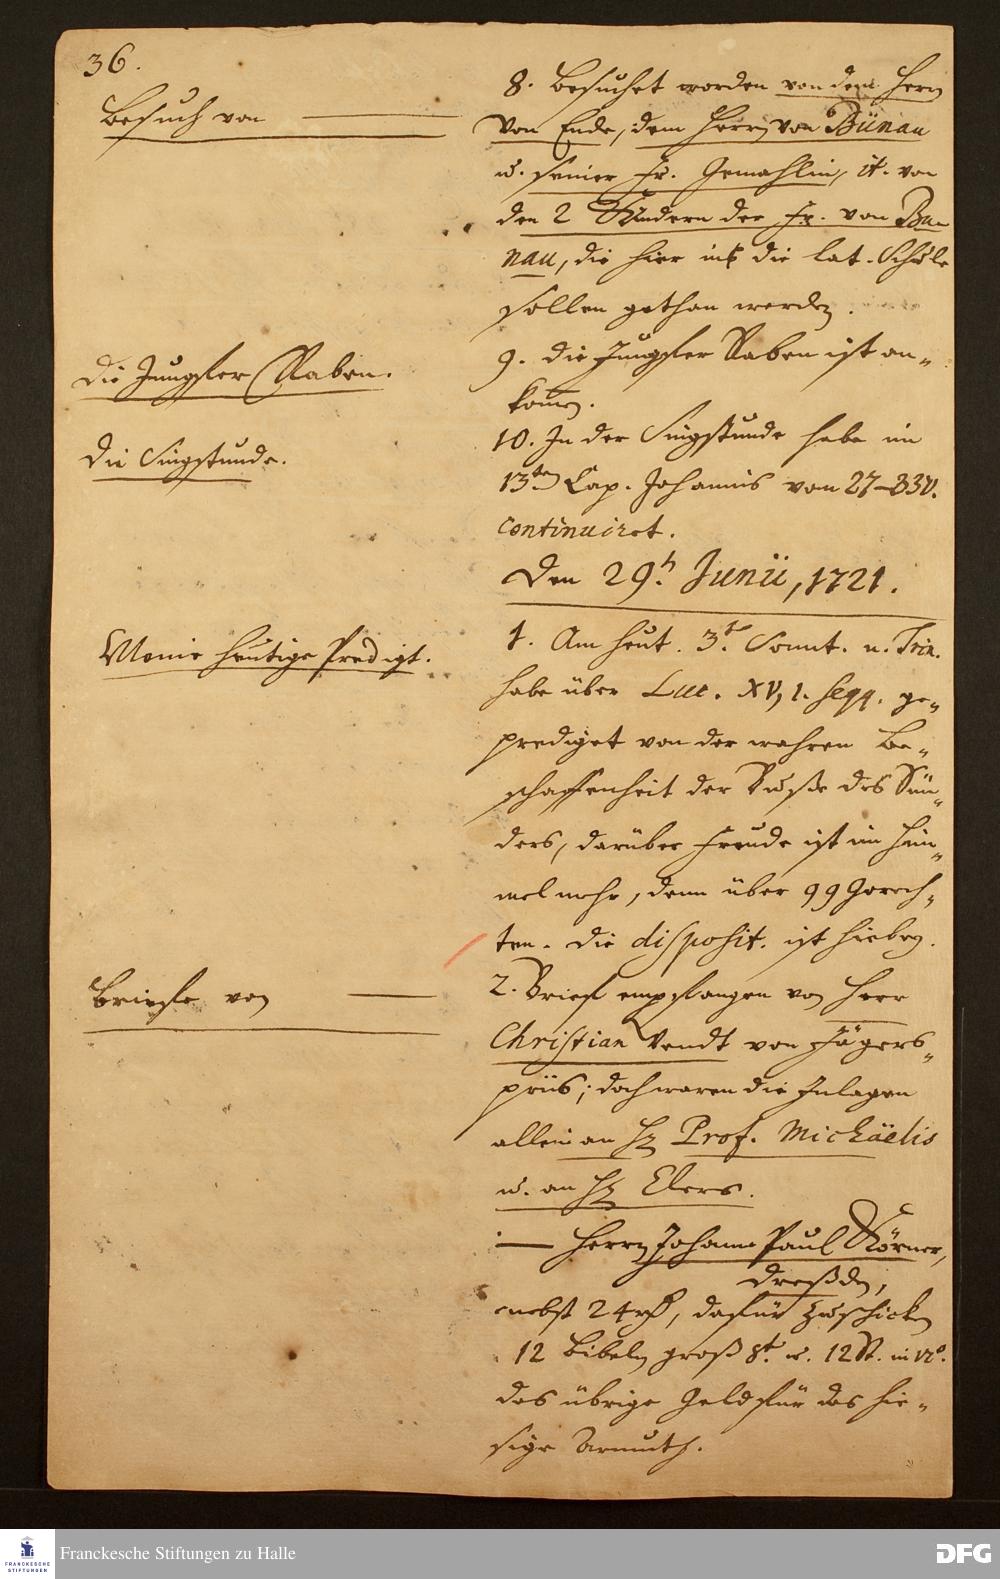 36.
Besuch von
8. Besuchet worden von dem Herrn
von Ende, dem Herrn von Bünau
u. seiner Fr. Gemahlin, it. von
den 2 Kindern der Fr. von Bü-
nau, die hier in die lat. Schule
sollen gethan werden.
Die Jungfer Raben.
9. die Jungfer Raben ist an-
komen.
Die Singstunde.
10. In der Singstunde habe im
13ten Cap. Johannis vom 27-33v.
continuiret.
Den 29. Junii, 1721.
Meine heutige Predigt.
1. Am heut. 3t. Sonnt. n. Trin.
habe über Luc. XV, 1. seqq. ge-
prediget von der wahren Be-
schaffenheit der Buße des Sün-
ders, darüber Freude ist im Him-
mel mehr, denn über 99 Gerech-
ten. Die disposit. ist hiebey.
Brieffe von
2. Brieff empfangen von Herr
Christian Wendt von Jägers-
priis; doch waren die Inlagen
allein an H. Prof. Michaelis
u. an H. Elers.
— Herrn Johann Paul Körner,
Dreßden,
nebst 24 rth, dafür zu schicken
12 Bibeln groß 8t. u. 12 St. in 12o.
das übrige Geld für das hie-
sige Armuth.
Franckesche Stiftungen zu Halle
FRANCKESCHE
STIFTUNGEN
DFG